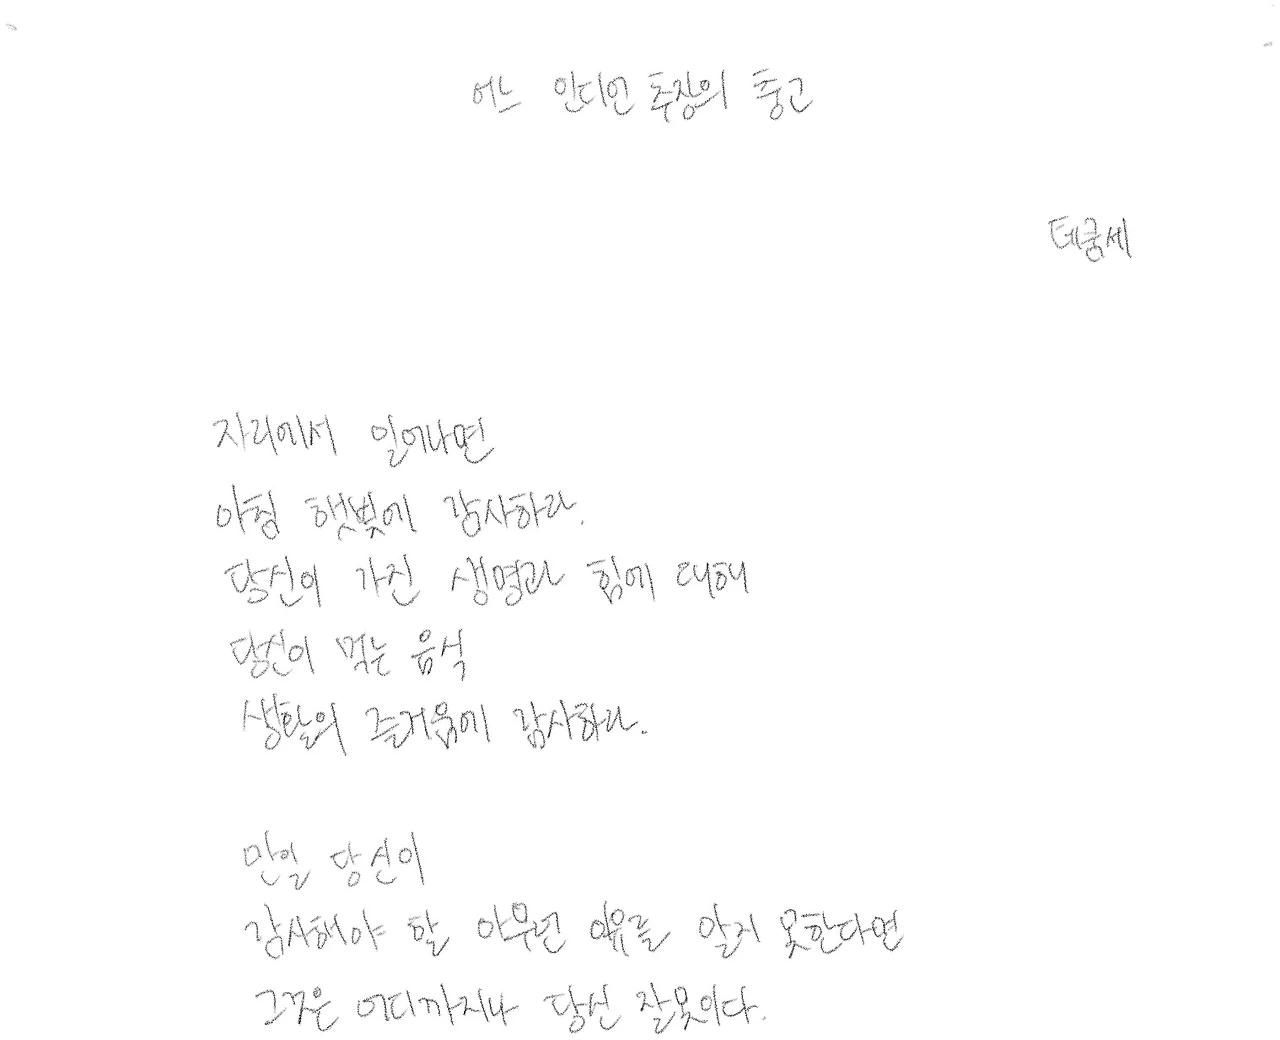 어느 인디언 추장의 충고
테쿰세
자리에서 일어나면
아침 햇빛에 감사하라.
당신이 가진 생명과 힘에 대해
당신이 먹는 음식
생활의 즐거움에 감사하라.
만일 당신이
감사해야 할 아무런 이유를 알지 못한다면
그것은 어디까지나 당신 잘못이다.